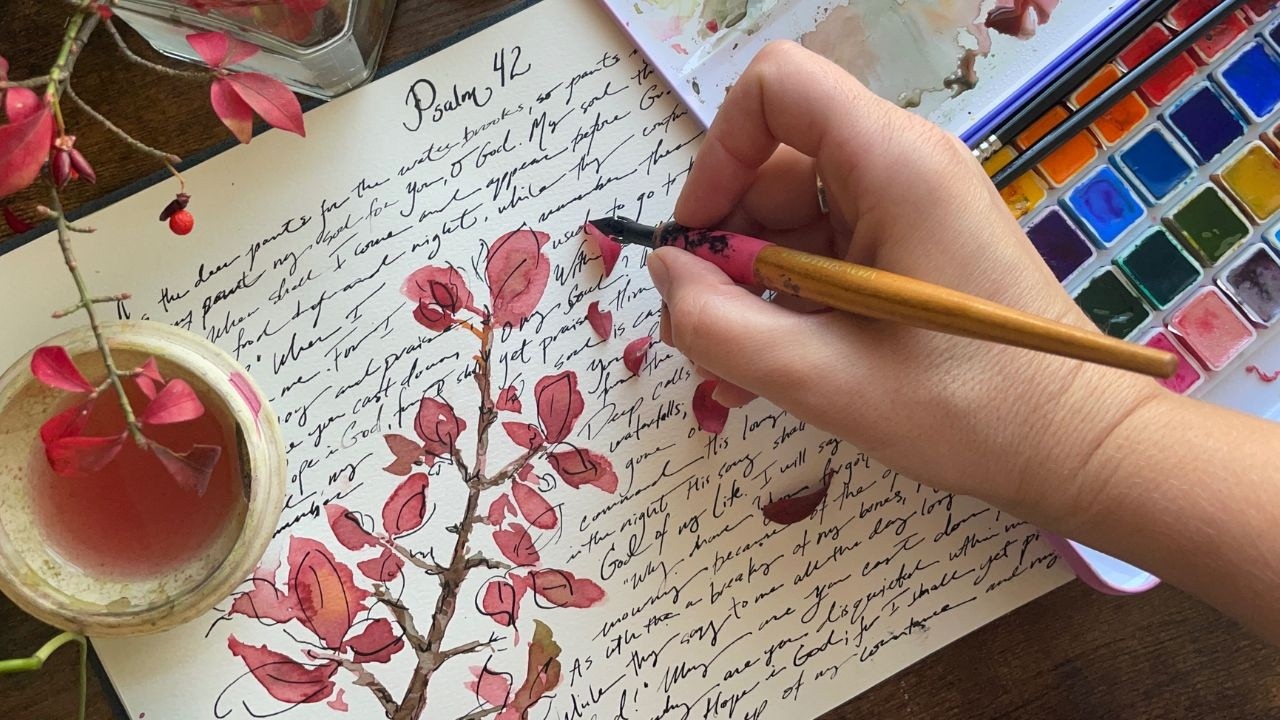 Psalm 42
the deer pants for the water brooks, so pants
my soul for you, O God. My soul th
When shall I come and appear before G
food day and night, while they contin
When I remember these
me. For I used to go to
joy and praise With
e you cast down, O my soul ?
ope in God, for I shall yet praise Him
my soul is cas
you
from the
Deep calls
waterfalls;
gone o
command His lov
in the night His song shall
God of my life. I will say
"Why have forgot
mourning because of the op
As with the a breaking of my bones,
While they say to me all the day long
d?" Why are you cast down
why are you disquieted within m
Hope in God; for I shall yet p
p of my countenance and my